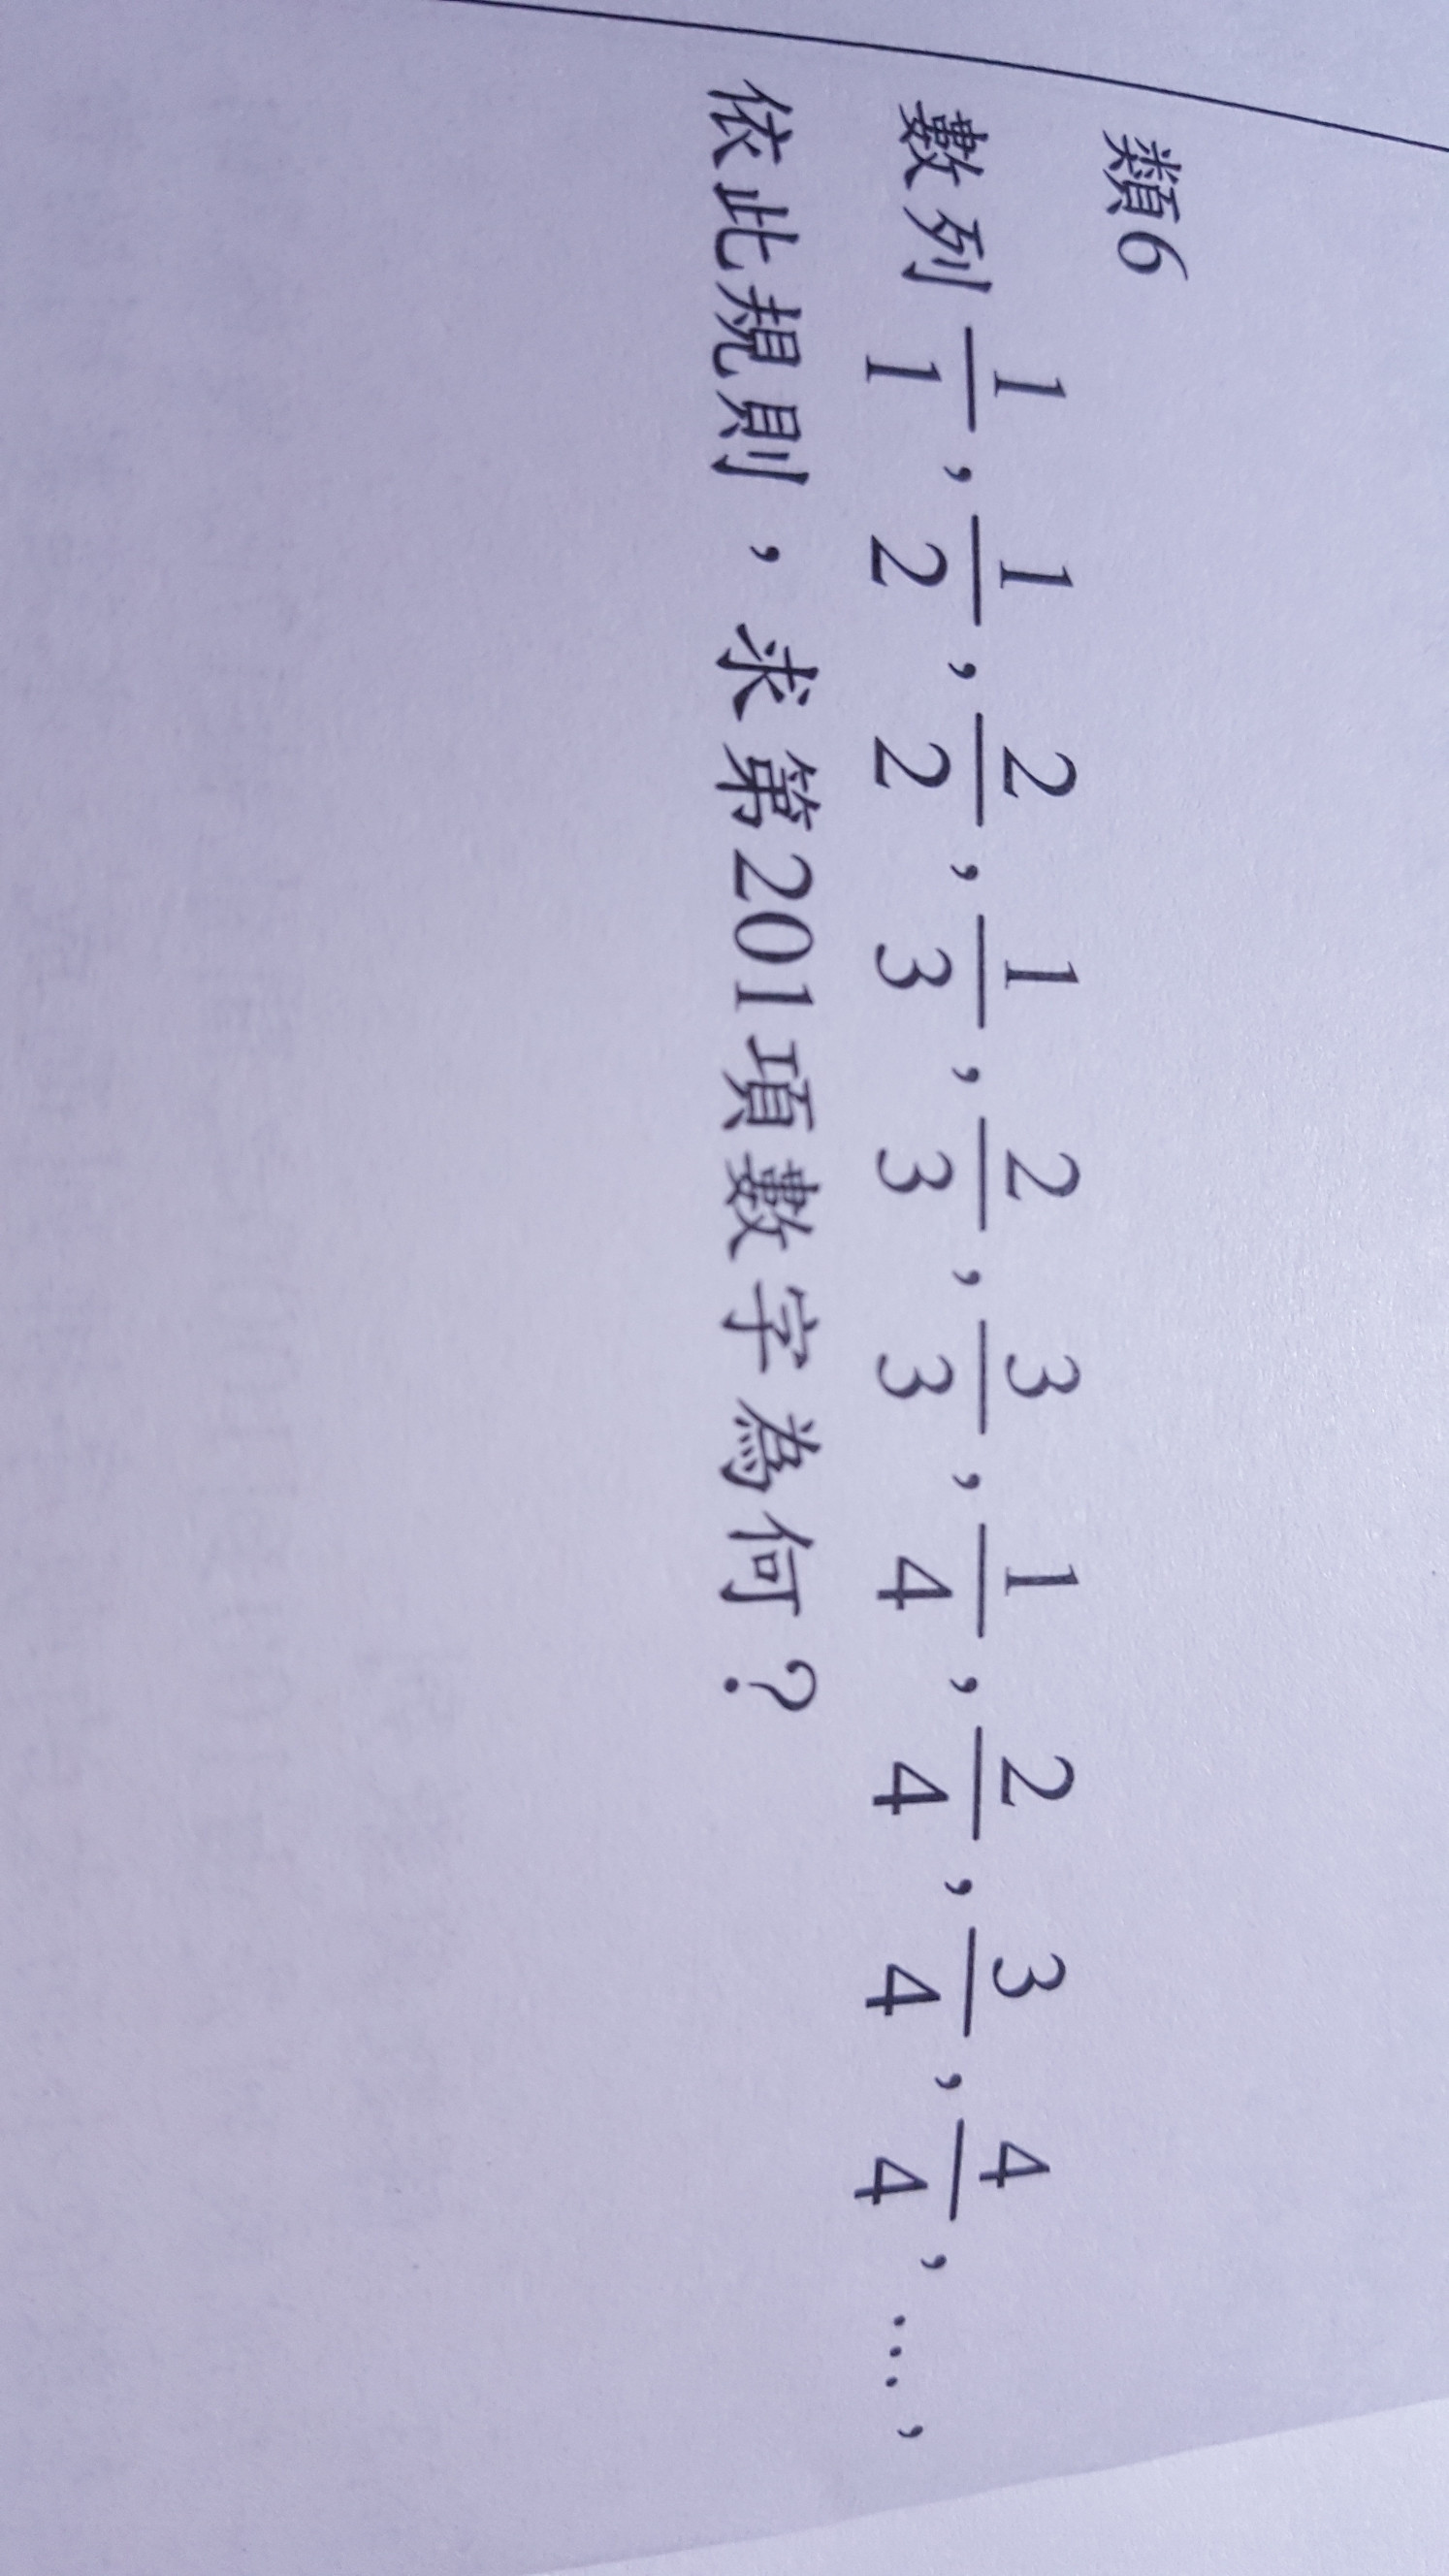 類6
數列 1/1, 1/2, 2/2, 1/3, 2/3, 3/3, 1/4, 2/4, 3/4, 4/4, …,
依此規則，求第201項數字為何？